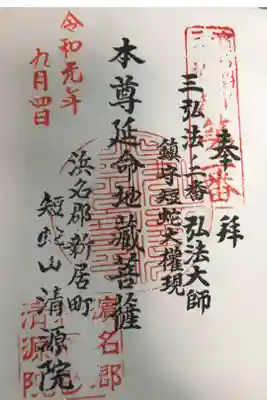 奉拜
三弘法二番 弘法大師
鎮守短蛇大權現
本尊延命地藏菩薩
浜名郡新居町
短蛇山清源院
令和元年
九月四日
濱名郡
清源院